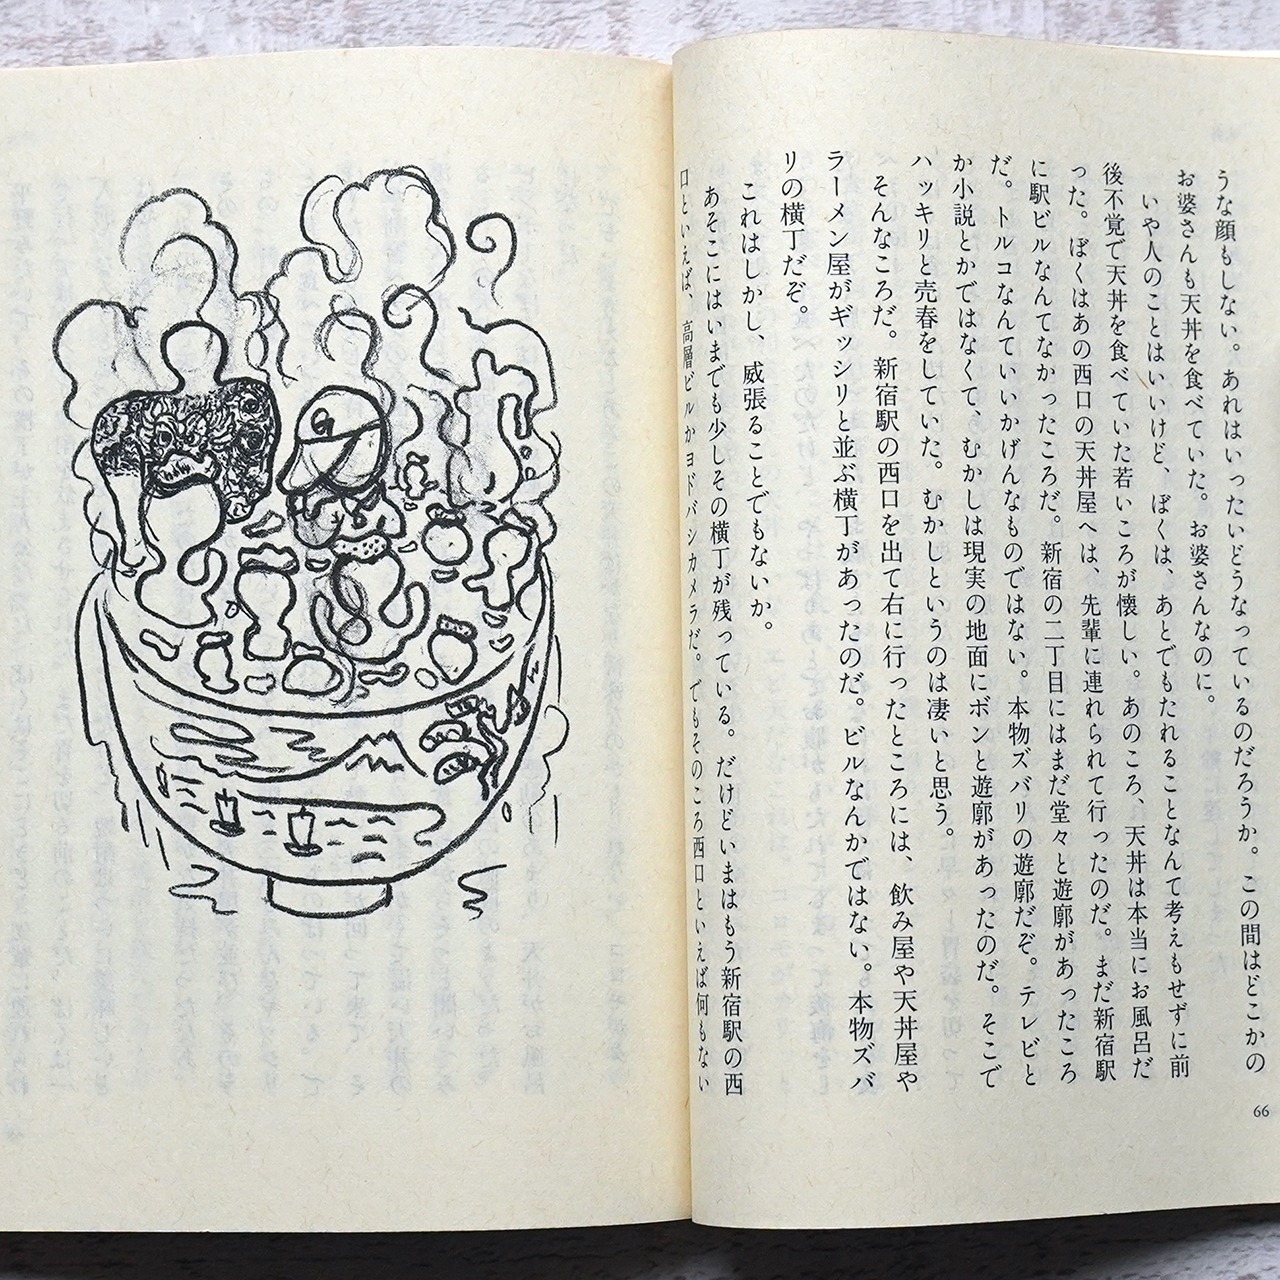 うな顔もしない。あれはいったいどうなっているのだろうか。この間はどこかの
お婆さんも天丼を食べていた。お婆さんなのに。
いや人のことはいいけど、ぼくは、あとでもたれることなんて考えもせずに前
後不覚で天丼を食べていた若いころが懐しい。あのころ、天丼は本当にお風呂だ
った。ぼくはあの西口の天丼屋へは、先輩に連れられて行ったのだ。まだ新宿駅
に駅ビルなんてなかったころだ。新宿の二丁目にはまだ堂々と遊廓があったころ
だ。トルコなんていいかげんなものではない。本物ズバリの遊廓だぞ。テレビと
か小説とかではなくて、むかしは現実の地面にボンと遊廓があったのだ。そこで
ハッキリと売春をしていた。むかしというのは凄いと思う。
そんなころだ。新宿駅の西口を出て右に行ったところには、飲み屋や天丼屋や
ラーメン屋がギッシリと並ぶ横丁があったのだ。ビルなんかではない。本物ズバ
リの横丁だぞ。
これはしかし、威張ることでもないか。
あそこにはいまでも少しその横丁が残っている。だけどいまはもう新宿駅の西
口といえば、高層ビルかヨドバシカメラだ。でもそのころ西口といえば何もない
66